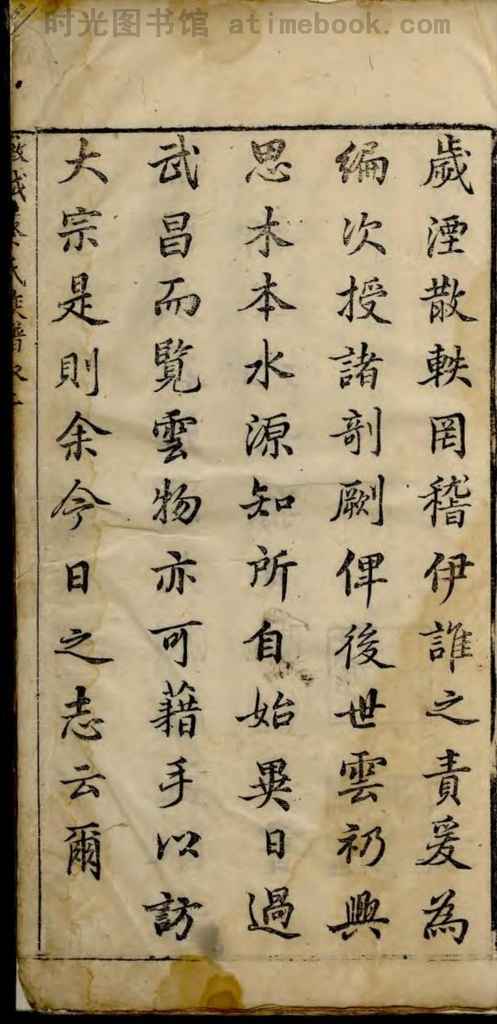 时光图书馆 atimebook.com
歲湮散軼罔稽伊誰之責爰為
編次授諸剞劂俾後世雲礽興
思木本水源知所自始異日過
武昌而覽雲物亦可藉手以訪
大宗是則余今日之志云爾
氏族譜